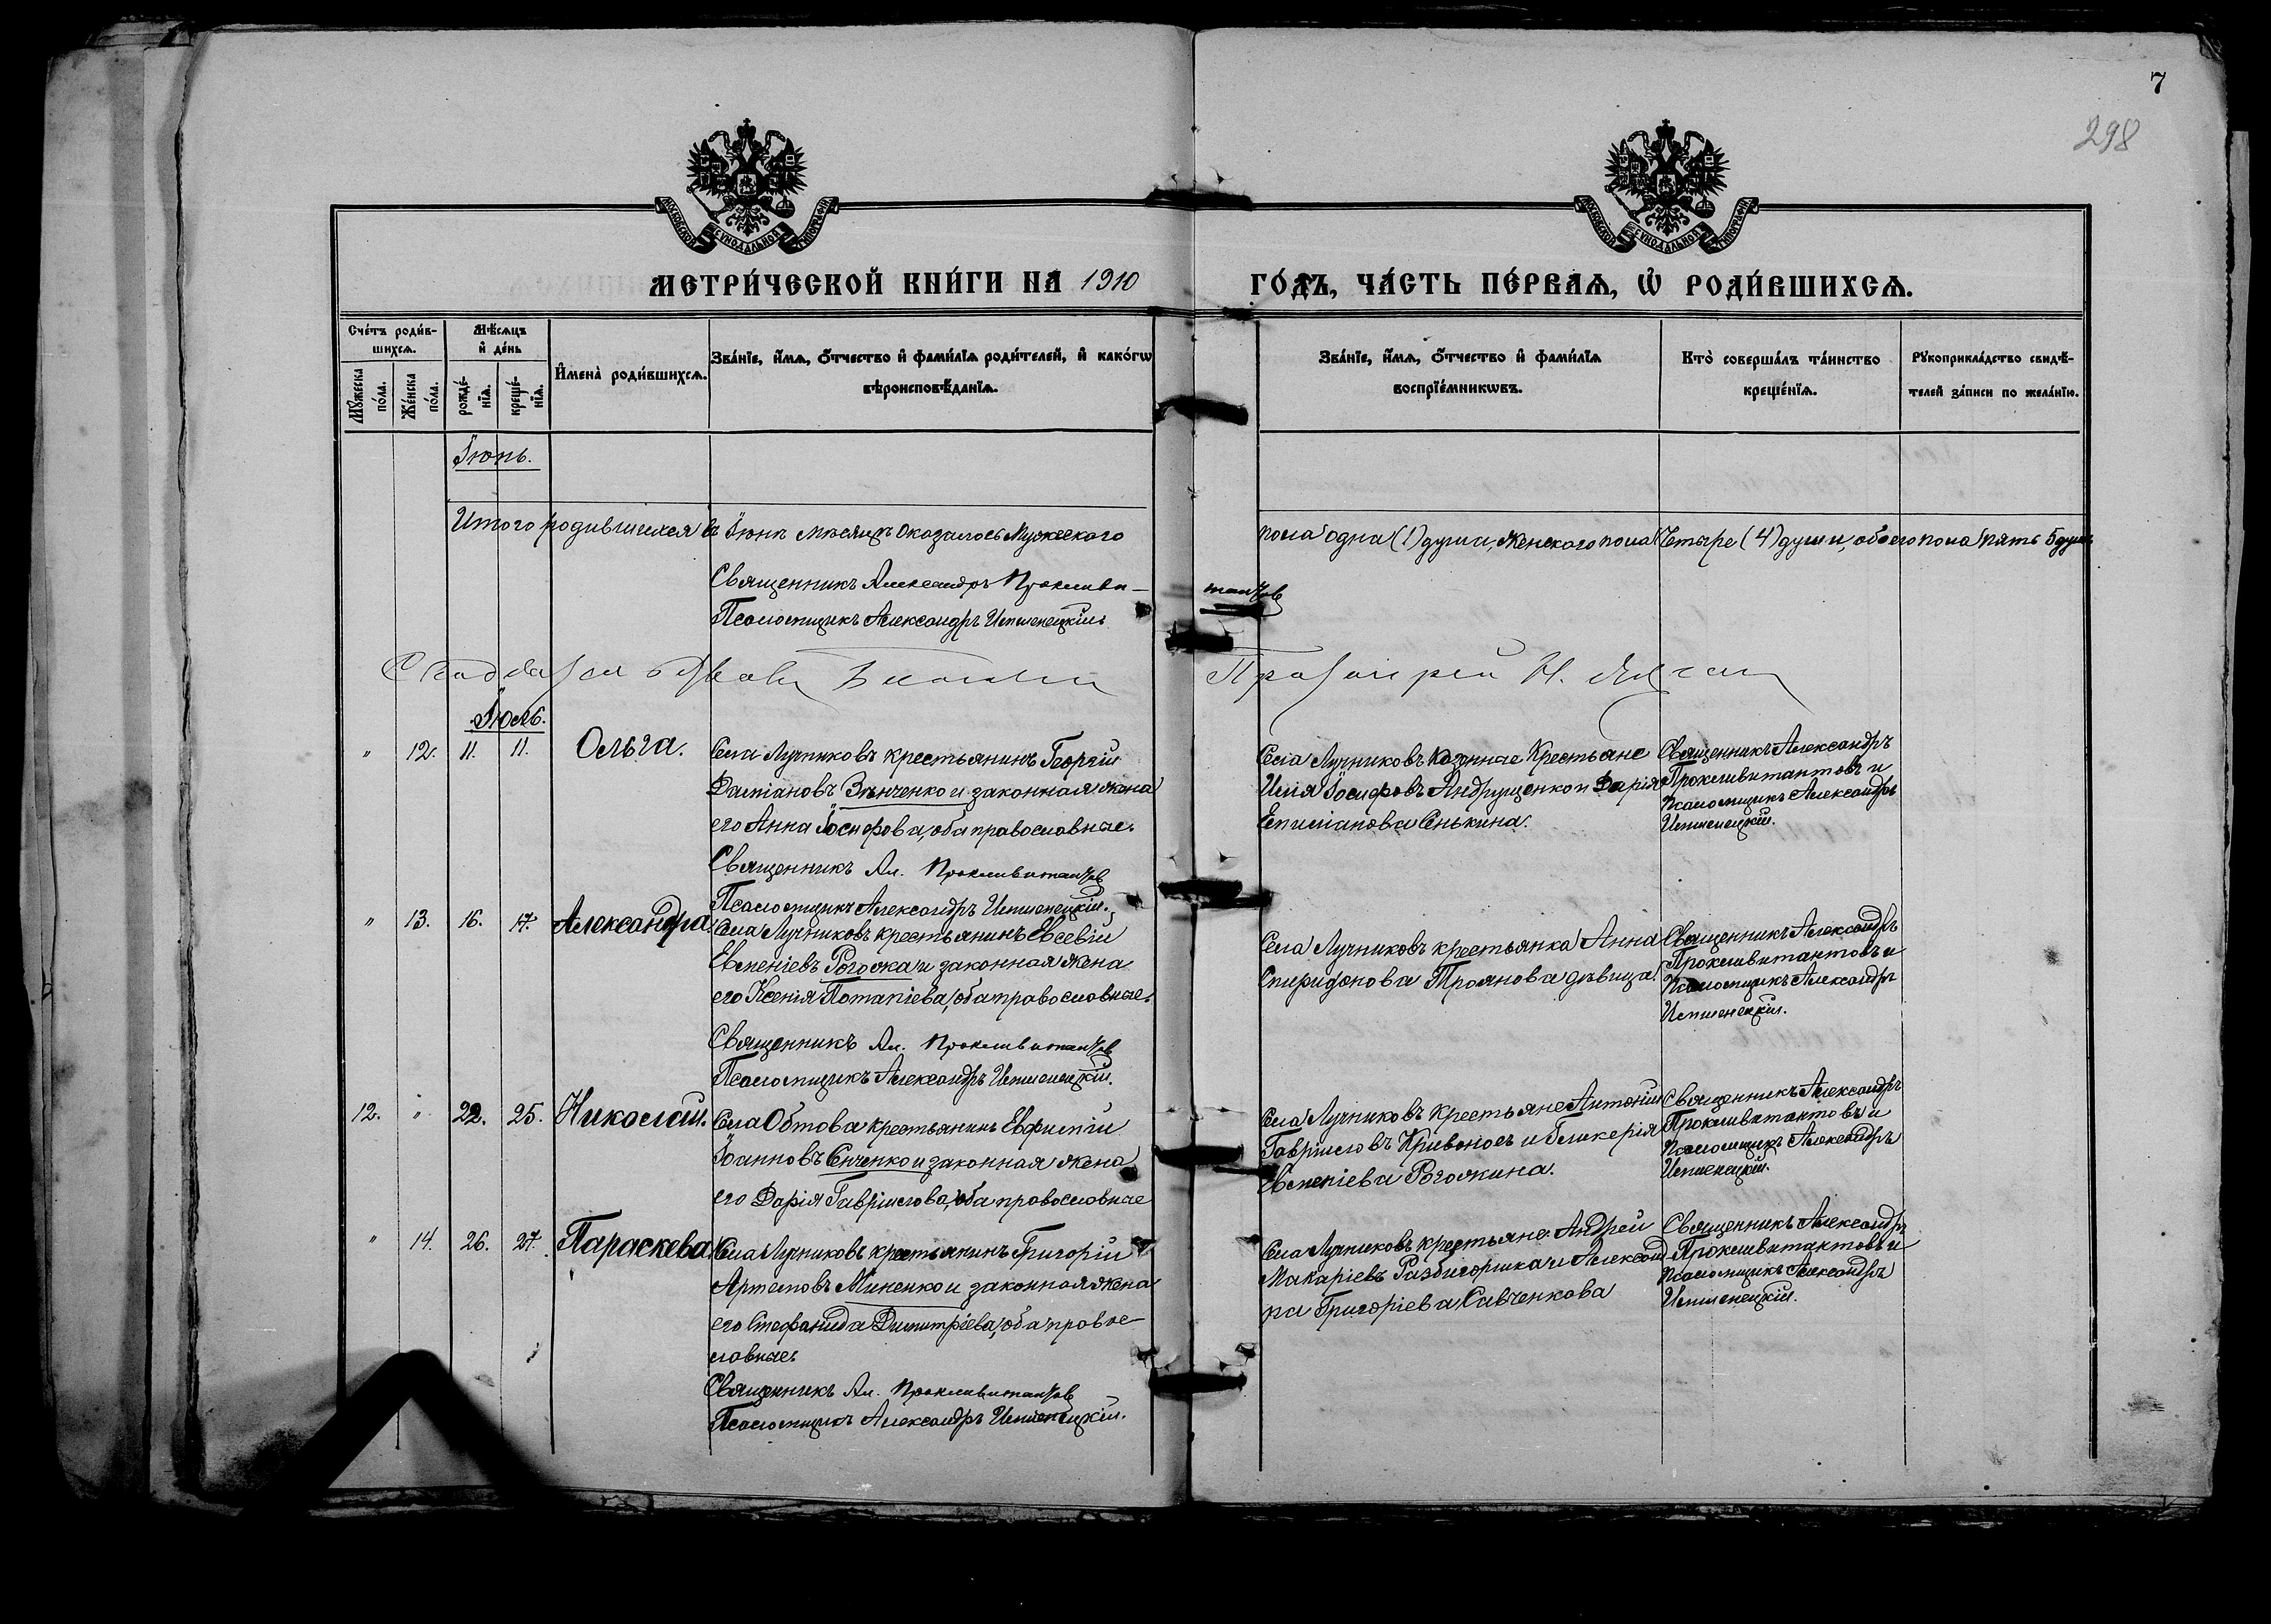 7
298
МОСКОВСКОЙ СѴНОДАЛЬНОЙ ТИПОГРАФІИ
МОСКОВСКОЙ СѴНОДАЛЬНОЙ ТИПОГРАФІИ
МЕТРИ́ЧЕСКОЙ КНИ́ГИ НА 1910
ГО́ДЪ, ЧА́СТЬ ПЕ́РВАѦ, Ѡ҆ РОДИ́ВШИХСѦ.
Сче́тъ роди́в-
шихсѧ.
Мꙋ́жеска по́ла.
Же́нска по́ла.
Мѣ́сѧцъ
и҆ де́нь
рожде́-
нїѧ.
креще́-
нїѧ.
И҆мена̀ роди́вшихсѧ.
Зва́нїе, и҆́мѧ, ѻ҆́тчество и҆ фами́лїѧ роди́телей, и҆ како́гѡ
вѣроисповѣ́данїѧ.
Зва́нїе, и҆́мѧ, ѻ҆́тчество и҆ фами́лїѧ
воспрїе́мникѡвъ.
Кто̀ соверша́лъ та́инство
креще́нїѧ.
Рꙋкоприкла́дство свидѣ́-
телей за́писи по жела́нїю.
Іюнь.
Итого родившихся въ Іюнѣ мѣсяцѣ оказалось Мужеского
пола одна (1) душа, женского пола Четыре (4) души, обоего пола пять 5 душъ
Священникъ Александръ Прокливи-
тантов
Псаломщикъ Александръ
Протоіерей Н.
Іюль.
" 12. 11. 11. Ольга.
Села Лучниковъ крестьянинъ Георгій
Даміановъ Зѣнченко и законная жена
его Анна Іосифова, оба православные.
Священникъ Ал. Прокливитантов
Псаломщикъ Александръ
Села Лучниковъ Казенные Крестьяне
Илія Іосифовъ Андрущенко и Дарія
Епиміанова Сенькина.
Священникъ Александръ
Прокливитантовъ и
Псаломщикъ Александръ
" 13. 16. 17. Александра.
Села Лучниковъ крестьянинъ Евсевій
Евменіевъ Рогожка и законная жена
его Ксенія Потапіева, оба православные.
Священникъ Ал. Прокливитантов
Псаломщикъ Александръ
Села Лучниковъ крестьянка Анна
Спиридонова Троянова дѣвица.
Священникъ Александръ
Прокливитантовъ и
Псаломщикъ Александръ
12. " 22. 25. Николай.
Села Обтова крестьянинъ Евфимій
Іоанновъ Сенченко и законная жена
его Дарія Гавріилова, оба православные
Села Лучниковъ крестьяне Антоній
Гавріиловъ Кривоносъ и Гликерія
Евменіева Рогожкина.
Священникъ Александръ
Прокливитантовъ и
Псаломщикъ Александръ
" 14. 26. 27. Параскева
Села Лучниковъ крестьянинъ Григорій
Артемовъ Миненко и законная жена
его Стефанида Димитріева, оба право-
славные.
Священникъ Ал. Прокливитантов
Псаломщикъ Александръ
Села Лучниковъ крестьяне Андрей
Макаріевъ Разбигоршка и Александ-
ра Григоріева Савченкова
Священникъ Александръ
Прокливитантовъ и
Псаломщикъ Александръ